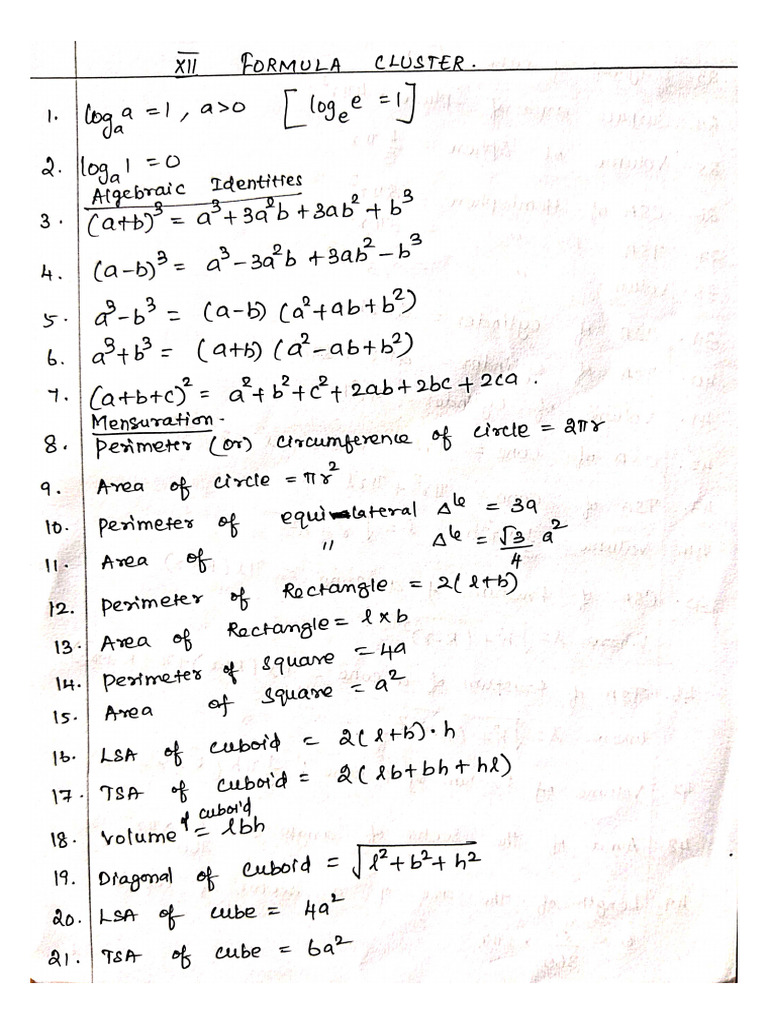 XII FORMULA CLUSTER.
1. logₐa = 1, a>0 [logₑe = 1]
2. logₐ1 = 0
Algebraic Identities
3. (a+b)³ = a³+3a²b+3ab²+b³
4. (a-b)³ = a³-3a²b+3ab²-b³
5. a³-b³ = (a-b) (a²+ab+b²)
6. a³+b³ = (a+b) (a²-ab+b²)
7. (a+b+c)² = a²+b²+c²+2ab+2bc+2ca.
Mensuration-
8. Perimeter (or) circumference of circle = 2πr
9. Area of circle = πr²
10. Perimeter of equilateral Δle = 3a
11. Area of " Δle = √3/4 a²
12. Perimeter of Rectangle = 2(l+b)
13. Area of Rectangle = l×b
14. Perimeter of square = 4a
15. Area of square = a²
16. LSA of cuboid = 2(l+b)·h
17. TSA of cuboid = 2(lb+bh+hl)
18. Volume of cuboid = lbh
19. Diagonal of cuboid = √l²+b²+h²
20. LSA of cube = 4a²
21. TSA of cube = 6a²